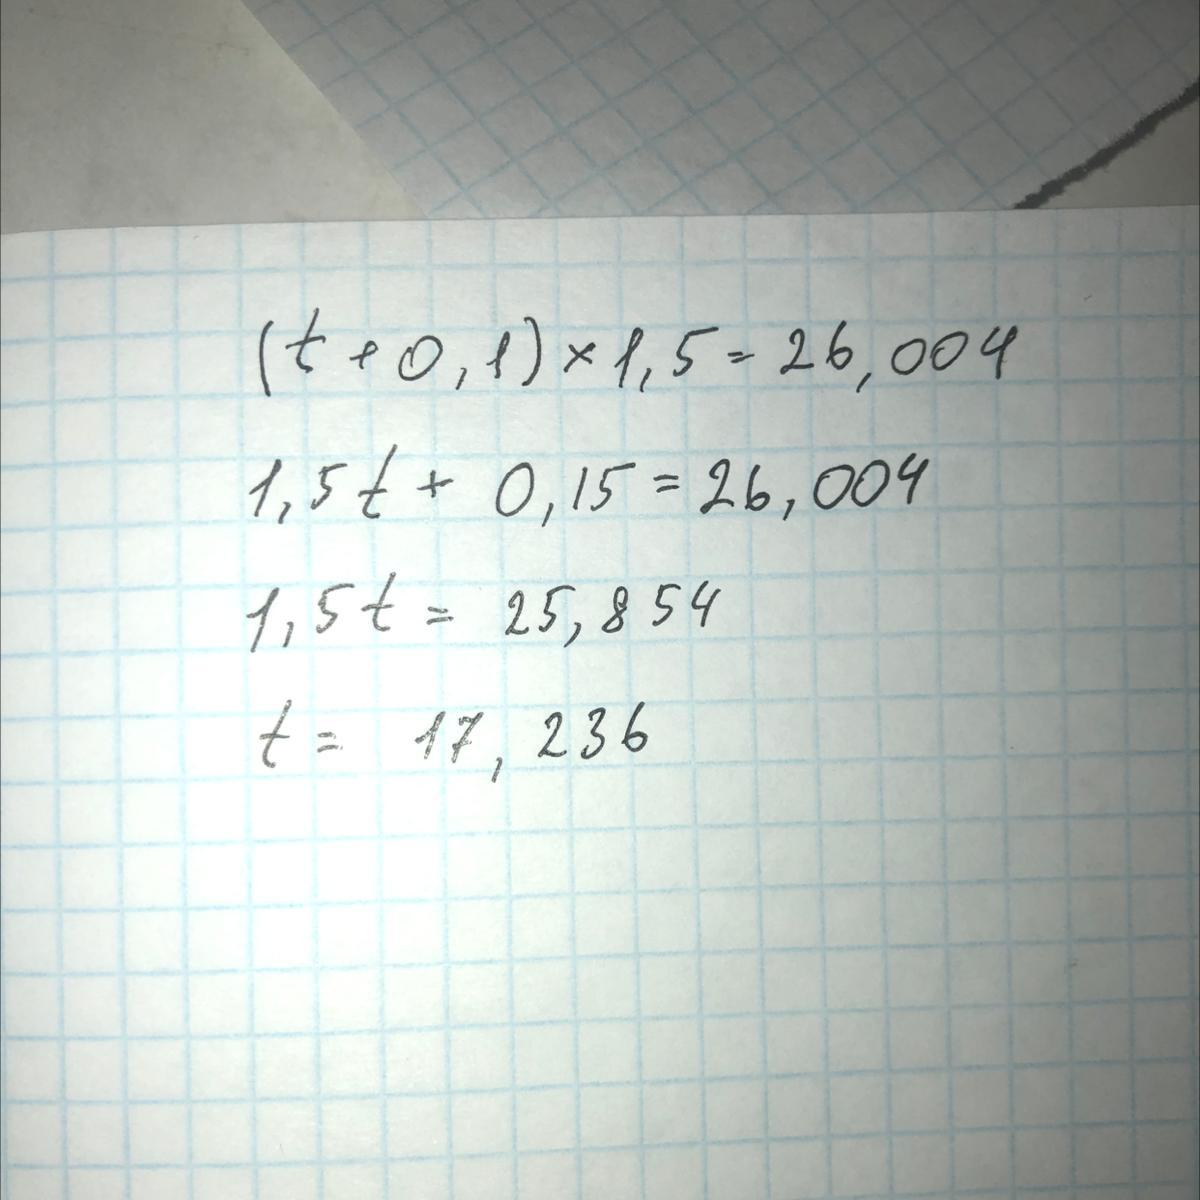 (t+0,1)×1,5=26,004
1,5t+0,15=26,004
1,5t=25,854
t=17,236